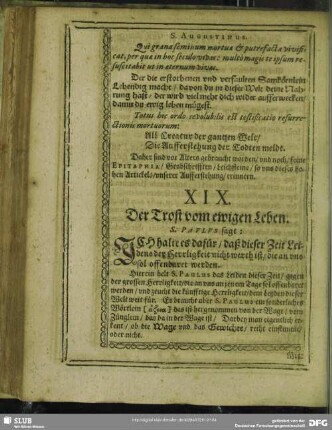 S. AUGUSTINUS.
Qui grana seminum mortua & putrefacta vivifi-
cat, per quæ in hoc seculo vivas: multò magis te ipsum re-
suscitabit ut in æternum vivas.
Der die erstorbenen vnd verfaulten Samkörnlein
Lebendig macht / davon du in dieser Welt deine Nah-
rung hast / der wird vielmehr dich wider aufferwecken /
damit du ewig leben mögest.
Totus hic ordo revolubilis est testificatio resurre-
ctionis mortuorum:
All Creatur der gantzen Welt /
Die Aufferstehung der Todten meldt.
Daher sind vor Alters gebraucht worden / vnd noch / seine
EPITAPHIA / Grabschrifften / Leichsteine / so vns dieses ho-
hen Artickels / vnserer Aufferstehung / erinnern.
XIX.
Der Trost vom ewigen Leben.
S. PAULUS sagt:
ICH halte es dafür / daß dieser Zeit Lei-
den der Herrligkeit nicht werth ist / die an vns
sol offenbaret werden.
Hierein helt S. PAULUS das Leiden dieser Zeit / gegen
der grossen Herrligkeit / die an vns an jenem Tage sol offenbaret
werden / vnd zeucht die künfftige Herrligkeit / dem Leiden dieser
Welt weit für. Es braucht aber S. PAULUS ein sonderliches
Wörtlein / das ist hergenommen von der Wage / vom
Zünglein / das da in der Wage ist / Darbey man eigentlich er-
kent / ob die Wage vnd das Gewichte / recht einstimme /
oder nicht.
SLUB
Wir führen Wissen.
gefördert von der
DFG
Deutschen Forschungsgemeinschaft